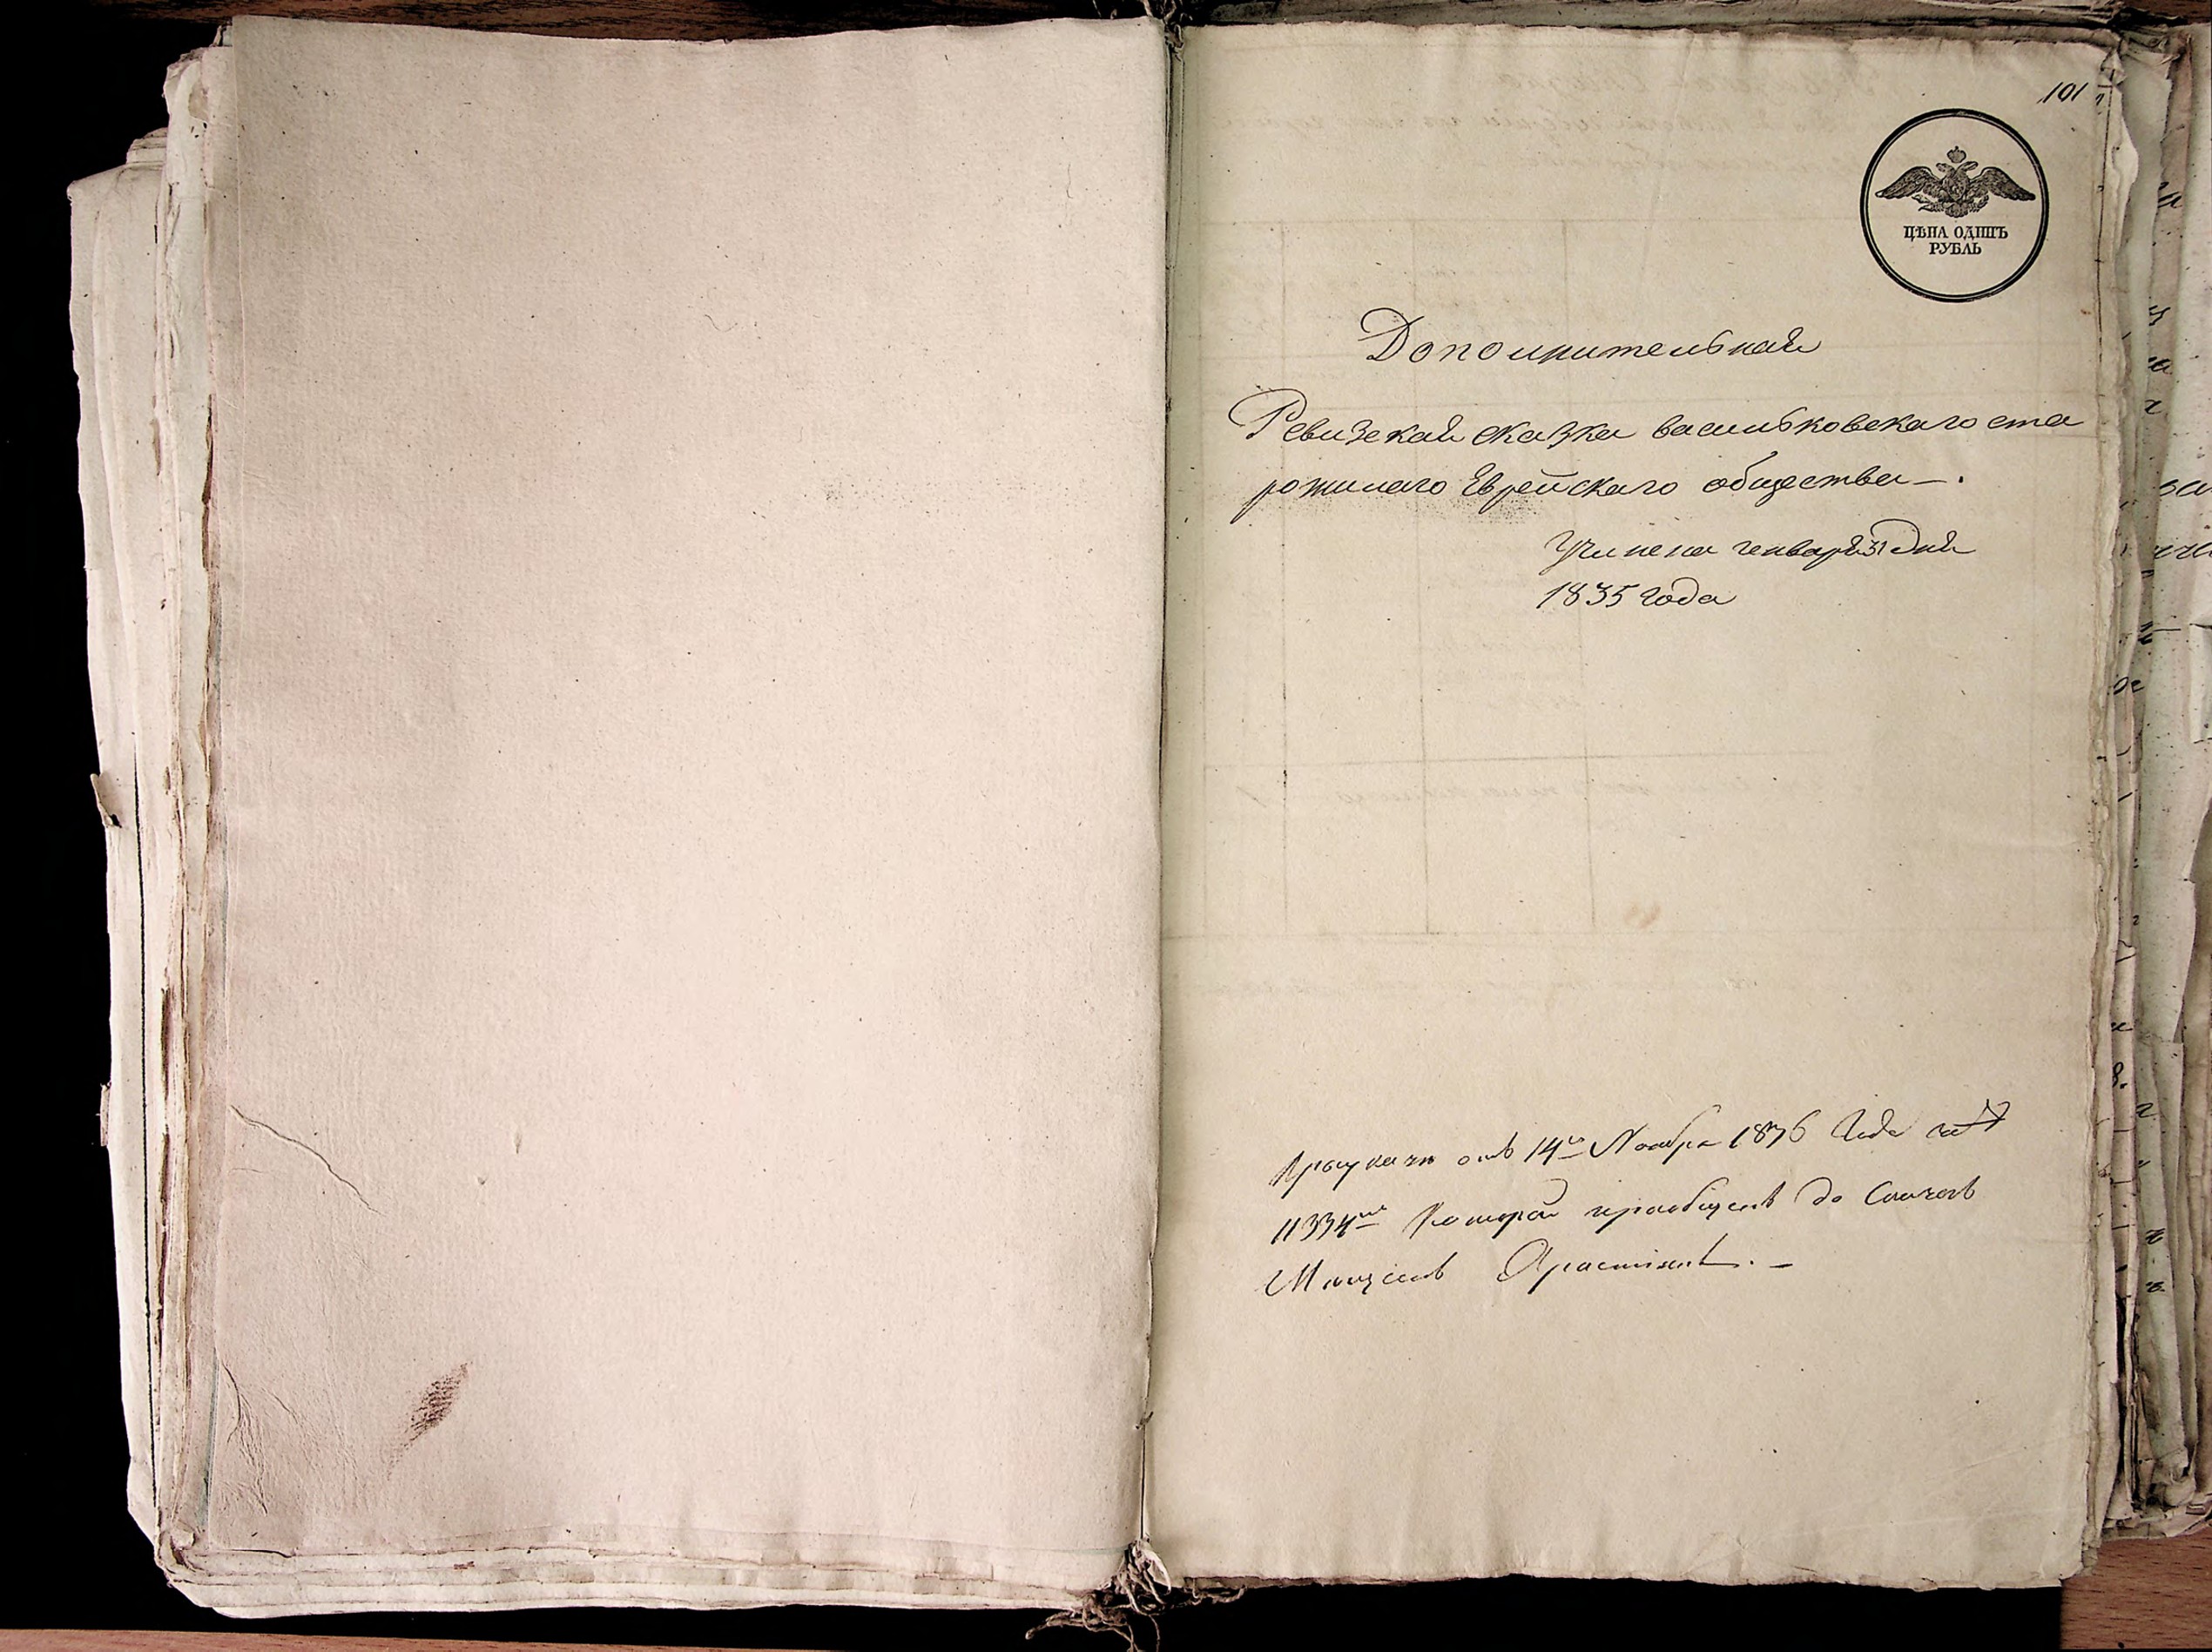 101
ЦѢНА ОДИНЪ
РУБЛЬ
Дополнительная
Ревизская сказка васильковскаго ста
рожилаго Еврейскаго общества —.
Учинена генваря 31 дня
1835 года
отъ 14го Ноября 1836 Года за №
11334мъ Которой приобщенъ до